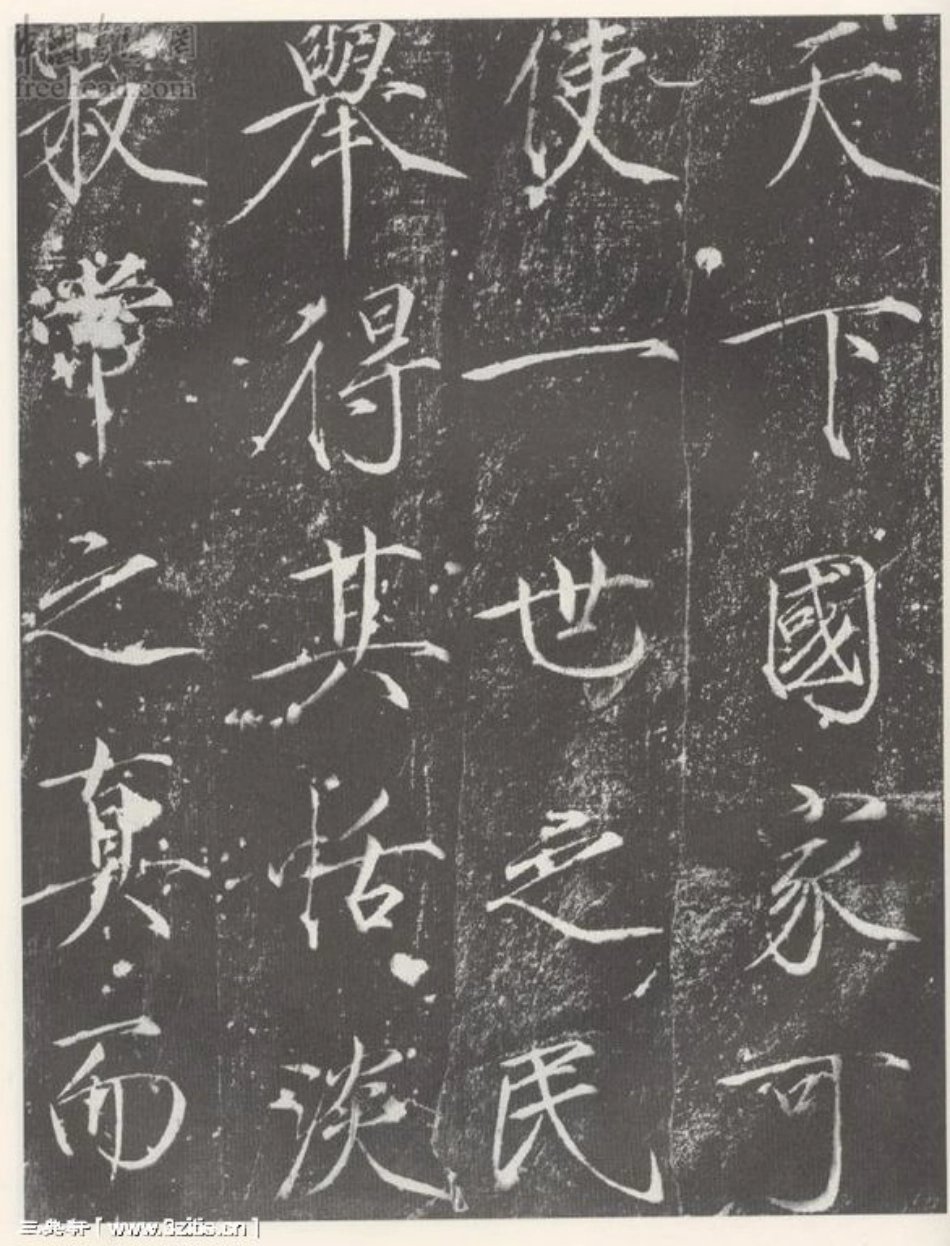 天下國家可
使一世之民
舉得其恬淡
寂常之真而
freehead.com
三典轩「www.3zitie.cn」